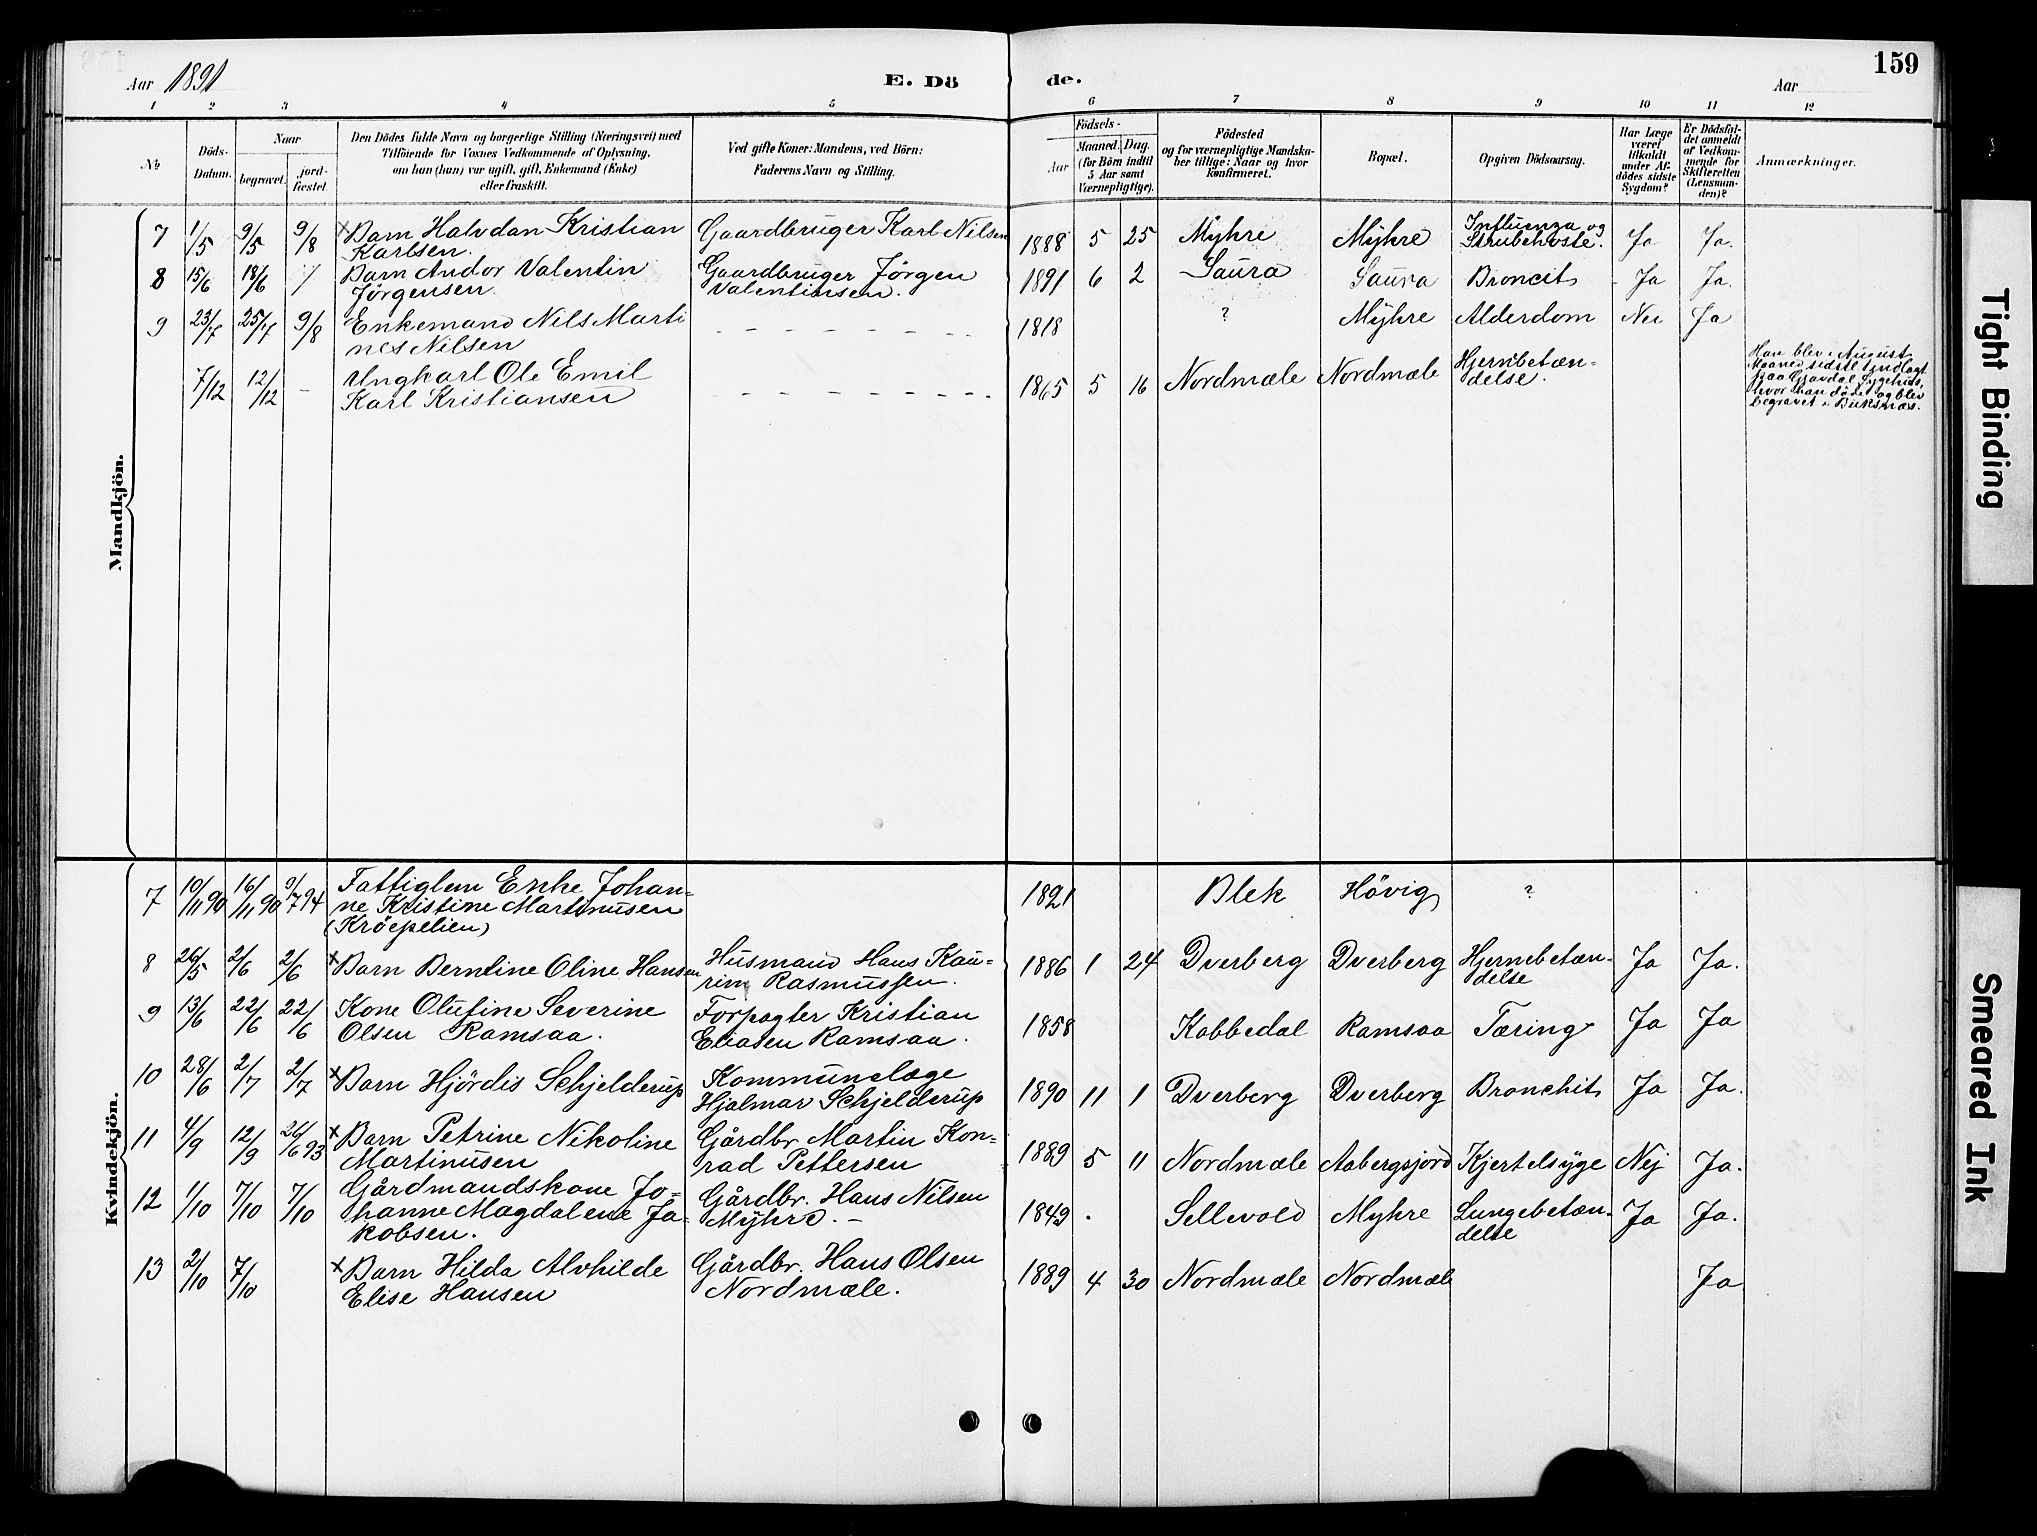 159
Aar 1891
E. Dö
de.
Aar
1 2 3 4 5 6 7 8 9 10 11 12
No
Döds-
Datum.
Naar
begravet.
jord-
fæstet.
Den Dödes fulde Navn og borgerlige Stilling (Næringsvei) med
Tilföiende for Voxnes Vedkommende af Oplysning,
om han (hun) var ugift, gift, Enkemand (Enke)
eller fraskilt.
Ved gifte Koner: Mandens, ved Börn:
Faderens Navn og Stilling.
Födsels-
Aar
Maaned.
Dag.
(for Börn indtil
5 Aar samt
Værnepligtige).
Födested
og for værnepligtige Mandska-
ber tillige: Naar og hvor
konfirmeret.
Bopæl.
Opgiven Dödsaarsag.
Har Læge
været
tilkaldt
under Af-
dödes sidste
Sygdom?
Er Dödsfal-
det anmeldt
af Vedkom-
mende for
Skifteretten
(Lensman-
den)?
Anmærkninger.
Mandkjön.
7 1/5 9/5 9/8 × Barn Halvdan Kristian Gaardbruger Karl Nilsen 1888 5 25 Myhre Myhre Influenza og Ja Ja.
Karlsen. Strubehoste.
8 15/6 18/6 / Barn Andor Valentin Gaardbruger Jörgen 1891 6 2 Saura Saura Broncit Ja Ja.
Jörgensen Valentinsen.
9 23/7 25/7 9/8 Enkemand Nils Marti 1818 ? Myhre Alderdom Nei Ja
nes Nilsen
7/12 12/12 - Ungkarl Ole Emil 1865 5 16 Nordmæle Nordmæle Hjernbetæn-
Karl Kristiansen delse.
Han blev i August
Maaned sidstl. indlagt
paa Gravdal Sygehus,
hvor han döde og blev
begravet i Buksnæs.
Kvindekjön.
7 10/11 90 16/11 90 9/7 94 Fattiglem Enke Johan- 1821 Blek Hövig ?
ne Kristine Martinusen
(Kröepelien)
8 26/5 2/6 2/6 × Barn Berntine Oline Hansen Husmand Hans Kau- 1886 1 24 Dverberg Dverberg Hjernebetæn- Ja Ja.
rin Rasmussen. delse
9 13/6 22/6 22/6 Kone Olufine Severine Forpagter Kristian 1858 Kobbedal Ramsaa Tæring Ja Ja
Olsen Ramsaa. Eliasen Ramsaa.
10 28/6 2/7 2/7 × Barn Hjördis Schjelderup Kommunelæge 1890 11 1 Dverberg Dverberg Bronchit Ja Ja.
Hjalmar Schjelderup
11 4/9 12/9 26/6 93 × Barn Petrine Nikoline Gårdbr. Martin Kon- 1889 5 11 Nordmæle Aabergsjord Kjertelsyge Nej Ja.
Martinusen rad Pettersen
12 1/10 7/10 7/10 Gårdmandskone Jo- Gårdbr. Hans Nilsen 1849 Sellevold Myhre Lungebetæn- Ja Ja.
hanne Magdalene Ja- Myhre. delse
kobsen.
13 2/10 7/10 × Barn Hilda Alvhilde Gårdbr. Hans Olsen 1889 4 30 Nordmæle Nordmæle Ja
Elise Hansen Nordmæle.
Tight Binding
Smeared Ink